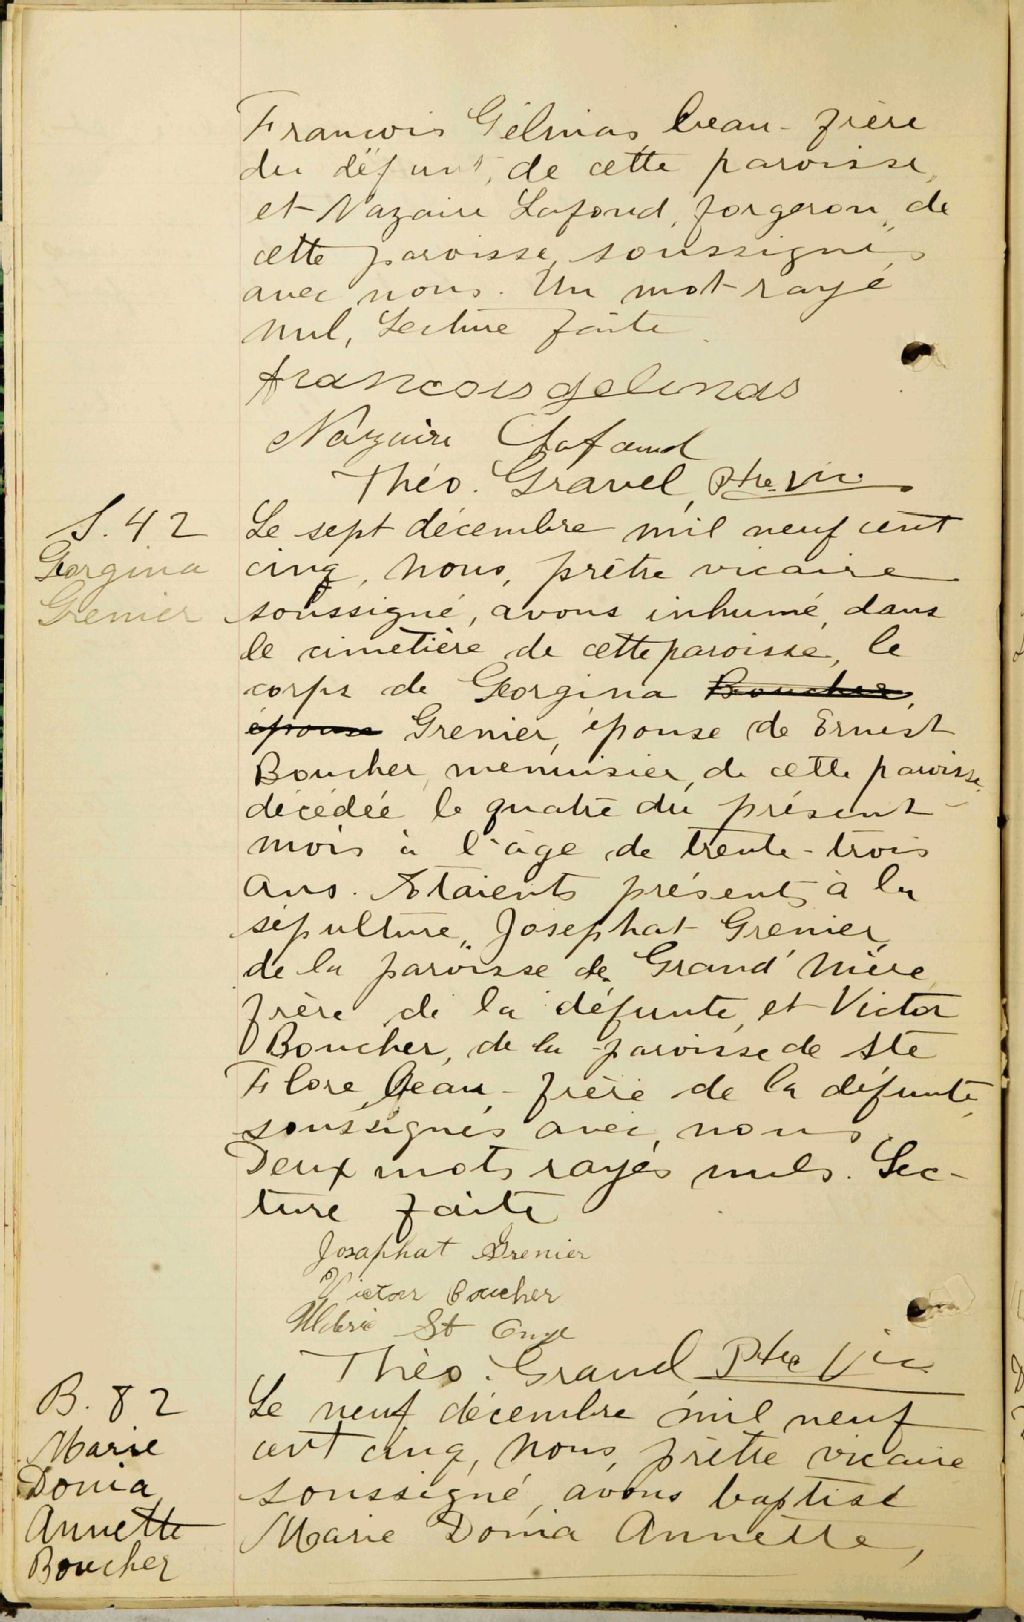 Francois Gélinas beau-frère
du défunt, de cette paroisse,
et Nazaire Lafond, forgeron, de
cette paroisse, soussignés
avec nous. Un mot rayé
nul, Lecture faite
francois gelinas
Nazaire Lafond
Théo. Gravel, Ptre Vic.
S. 42
Georgina
Grenier
Le sept décembre mil neuf cent
cinq, nous, prêtre vicaire
soussigné, avons inhumé, dans
le cimetière de cette paroisse, le
corps de Georgina Boucher,
épouse Grenier, épouse de Ernest
Boucher, menuisier, de cette paroisse,
décédée le quatre du présent
mois à l'âge de trente-trois
ans. Etaient présents à la
sépulture, Josephat Grenier,
de la paroisse de Grand'Mère,
frère de la défunte, et Victor
Boucher, de la paroisse de Ste
Flore, beau-frère de la défunte,
soussignés avec nous.
Deux mots rayés nuls. Lec-
ture faite
Josaphat Grenier
Victor Boucher
St Onge
Théo. Gravel Ptre Vic
B. 82
Marie
Donia
Annette
Boucher
Le neuf décembre mil neuf
cent cinq, nous, prêtre vicaire
soussigné, avons baptisé
Marie Donia Annette,